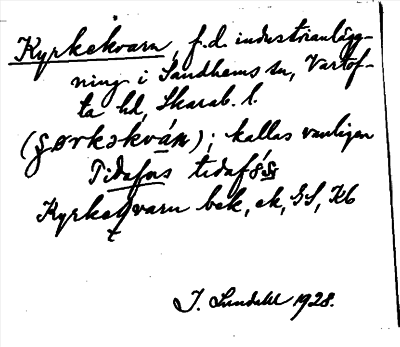 Kyrkekvarn, f.d. industrianlägg-
ning i Sandhems sn, Vartof-
ta hd, Skarab. l.
(ʂørkəkván); kallas vanligen
Tidafors tidafɔ́ʂ
Kyrkeqvarn bek, ek, GS, Kb
I. Lundahl 1928.